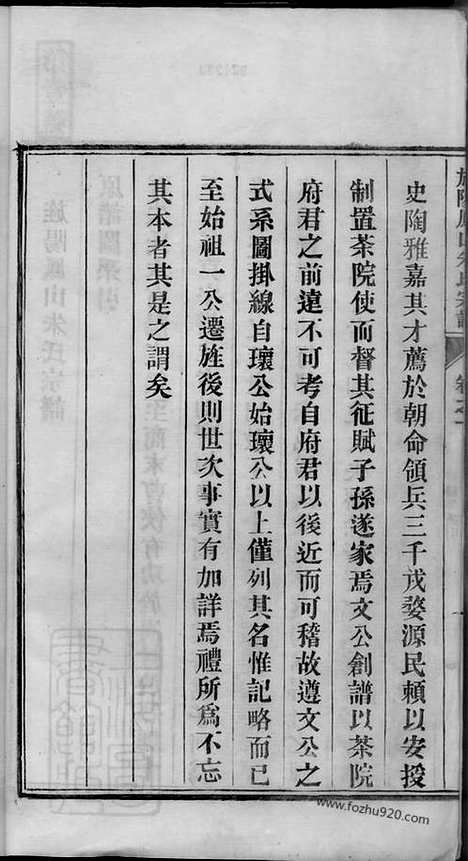 史陶雅嘉其才薦於朝命領兵三千戍婺源民賴以安授
制置茶院使而督其征賦子孫遂家焉文公創譜以茶院
府君之前遠不可考自府君以後近而可稽故遵文公之
式系圖掛線自瓌公始瓌公以上僅列其名惟記略而已
至始祖一公遷旌後則世次事實有加詳焉禮所爲不忘
其本者其是之謂矣
旌陽鳳山朱氏宗譜
www.fozhu920.com